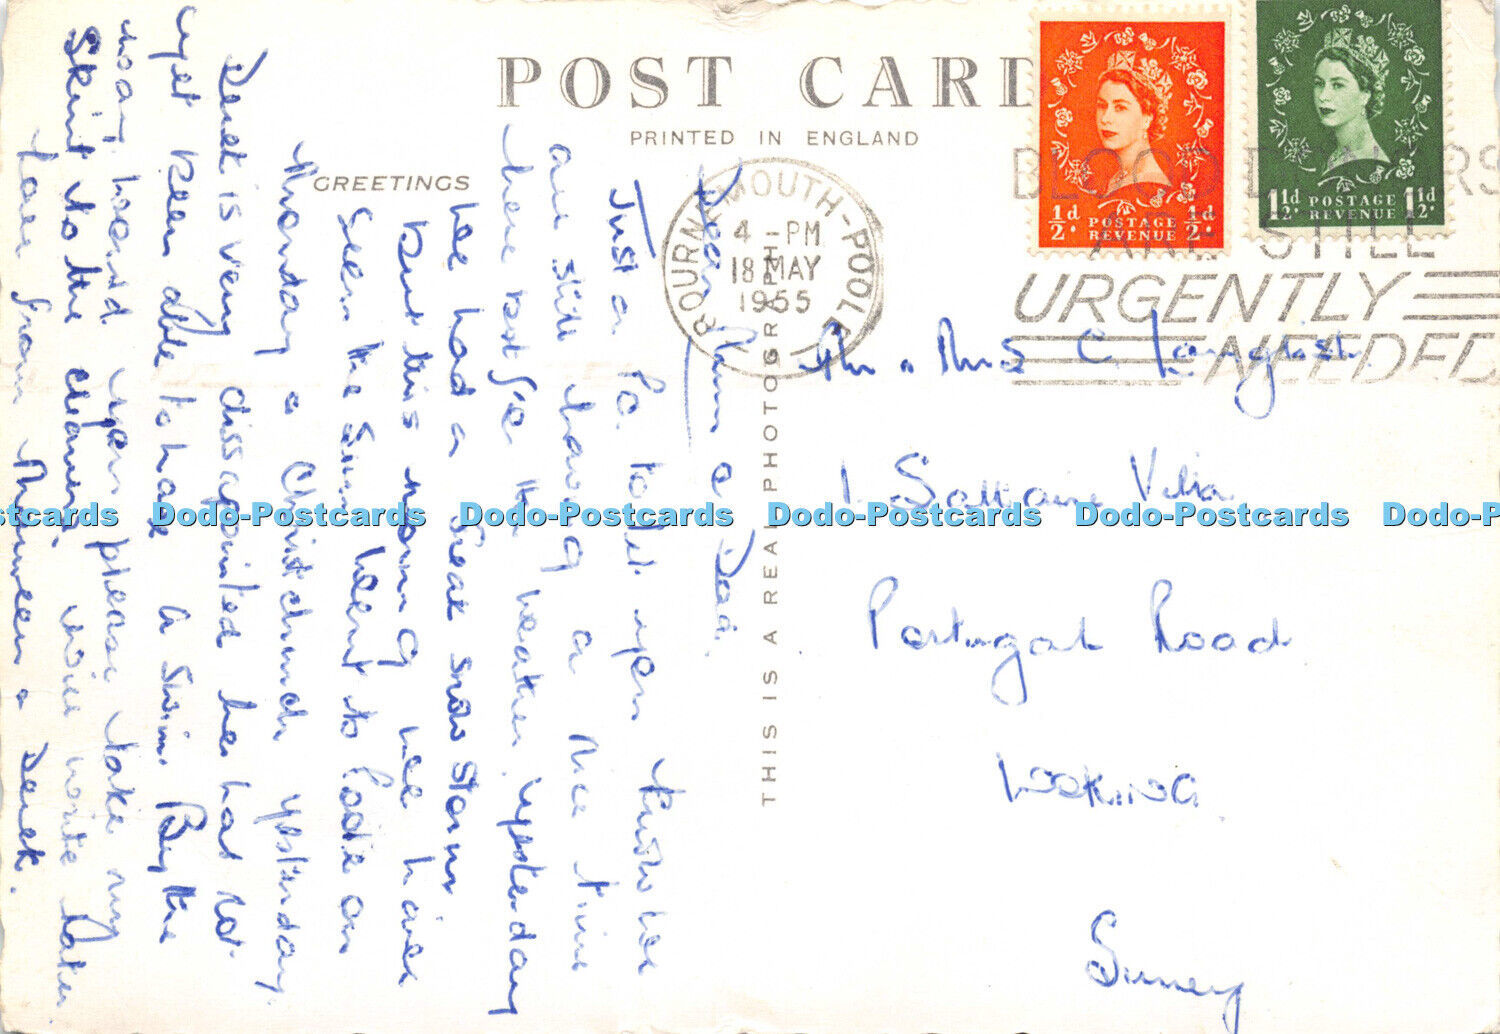 POST CARD
PRINTED IN ENGLAND
GREETINGS
BOURNEMOUTH-POOLE
4 - PM
18 MAY
1955
BLOOD DONORS
ARE STILL
URGENTLY
NEEDED
½d POSTAGE REVENUE ½d
1½d POSTAGE REVENUE 1½d
THIS IS A REAL PHOTOGRAPH
Dear Mum & Dad.
Just a Pc. to let you know we
are still having a nice time
here except for the weather. yesterday
we had a freak snow storm
but this morning we have
seen the sun. went to Poole on
Monday & Christchurch yesterday.
Derek is very dissapointed he has not
yet been able to have a swim. By the
way, would you please take my
Skirt to the cleaners, will write later
Love from Maureen & Derek.
Mr & Mrs C
1 Villa
Portugal Road
Woking
Surrey
Dodo-Postcards Dodo-Postcards Dodo-Postcards Dodo-Postcards Dodo-Postcards